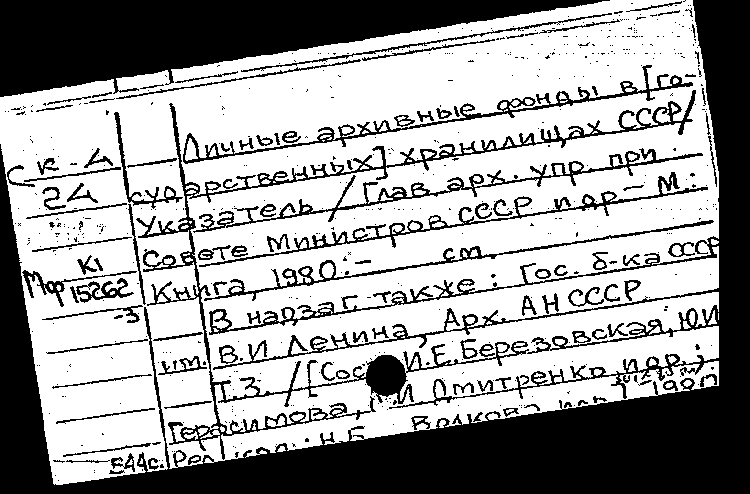 Личные архивные фонды в [го-
СК-4 сударственных] хранилищах СССР/
24 Указатель / Глав. арх. упр. при
Совете Министров СССР и др. - М.:
К1 Книга, 1980. - см.
15262 В надзаг. также: Гос. б-ка СССР
-3 им. В.И Ленина, Арх. АН СССР.
Т.3. / [Сос И.Е. Березовская, Ю.И
Герасимова, И Дмитренко и др.;
544с. Ред Н.Б. Волкова и др.] 1980